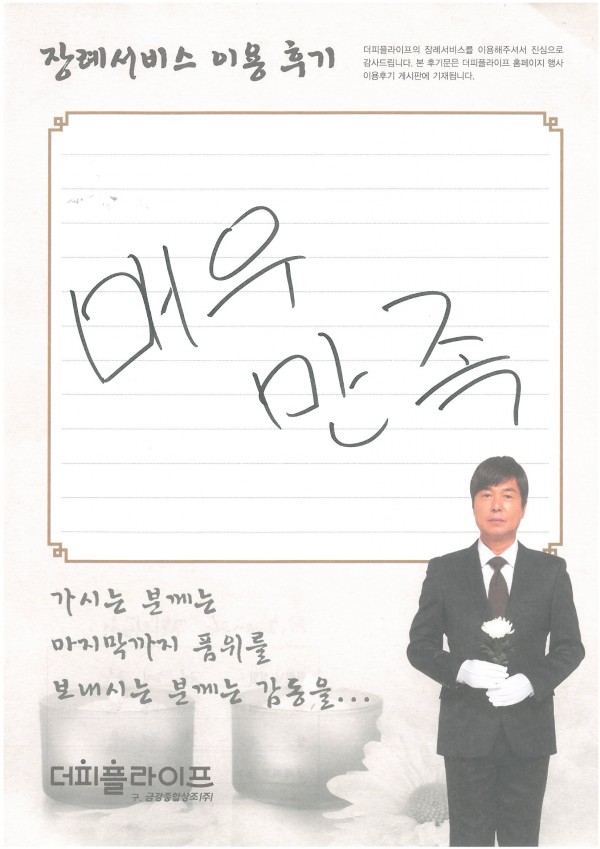 장례서비스 이용 후기
더피플라이프의 장례서비스를 이용해주셔서 진심으로
감사드립니다. 본 후기문은 더피플라이프 홈페이지 행사
이용후기 게시판에 기재됩니다.
매우
만족
가시는 분께는
마지막까지 품위를
보내시는 분께는 감동을...
더피플라이프
구. 금강종합상조(주)